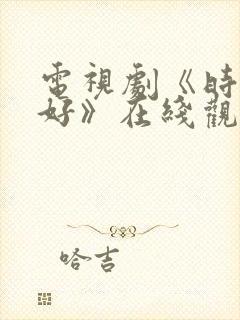 電視劇《時
好》在綫觀
哈吉